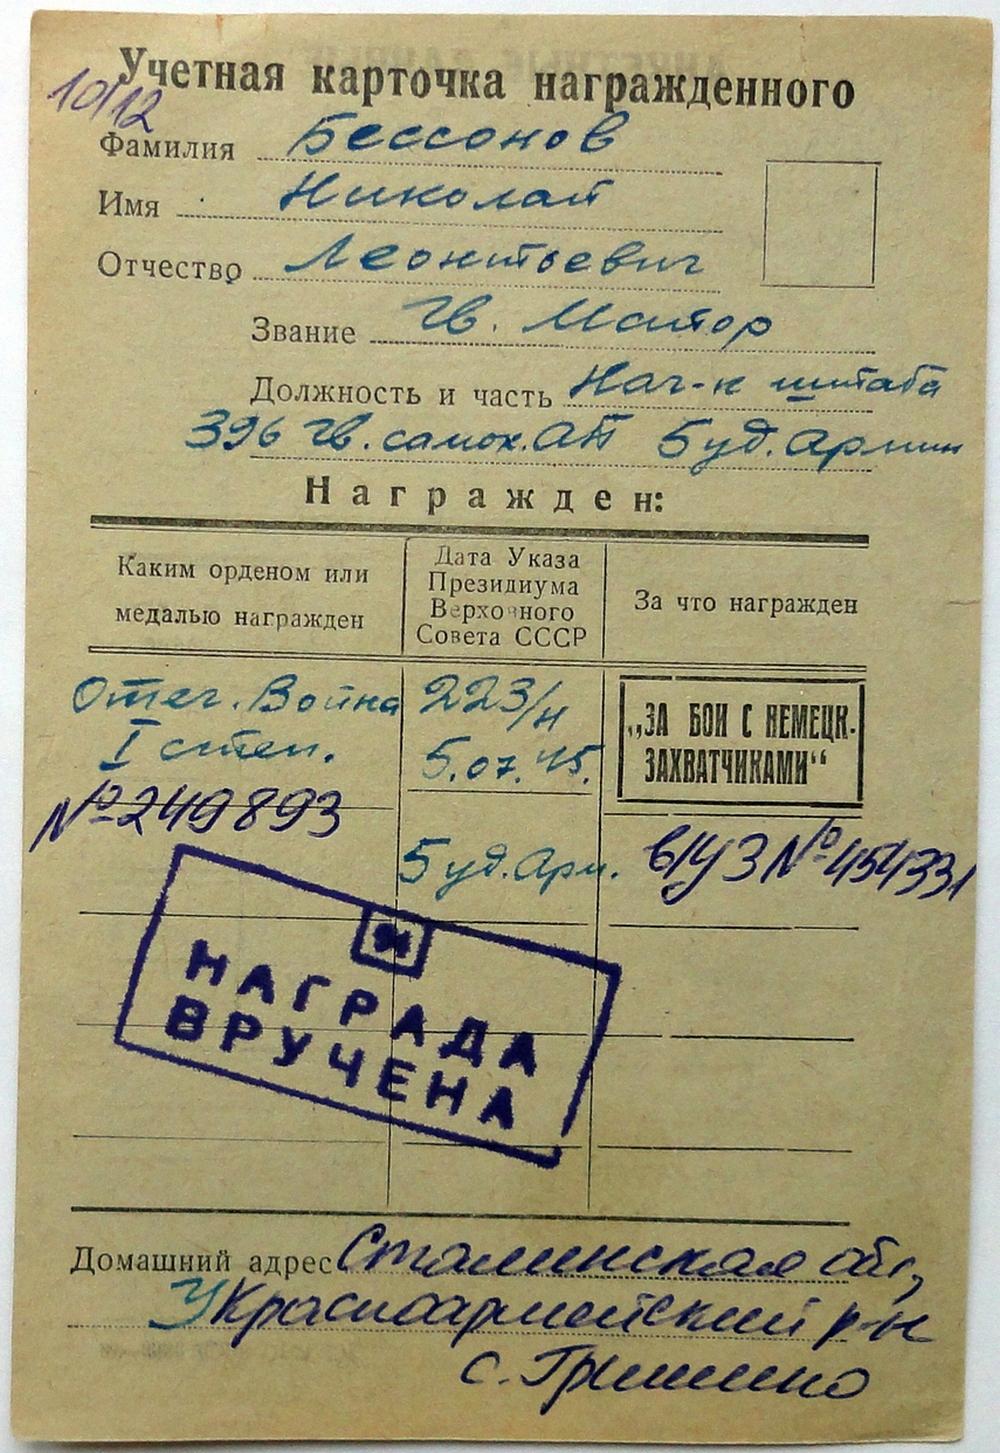 Учетная карточка награжденного
10/12
Фамилия Бессонов
Имя Николай
Отчество Леонтьевич
Звание Гв. Майор
Должность и часть Нач-к штаба
396 Гв. самох. АП 5 уд. Армии
Награжден:
Каким орденом или
медалью награжден
Дата Указа
Президиума
Верховного
Совета СССР
За что награжден
Отеч. Война
I степ.
№ 249893
223/н
5.07.45.
5 уд. Арм.
„ЗА БОИ С НЕМЕЦК.
ЗАХВАТЧИКАМИ“
в/у З № 454331
НАГРАДА
ВРУЧЕНА
Домашний адрес Сталинская обл,
Красноармейский р-н
с. Гришино